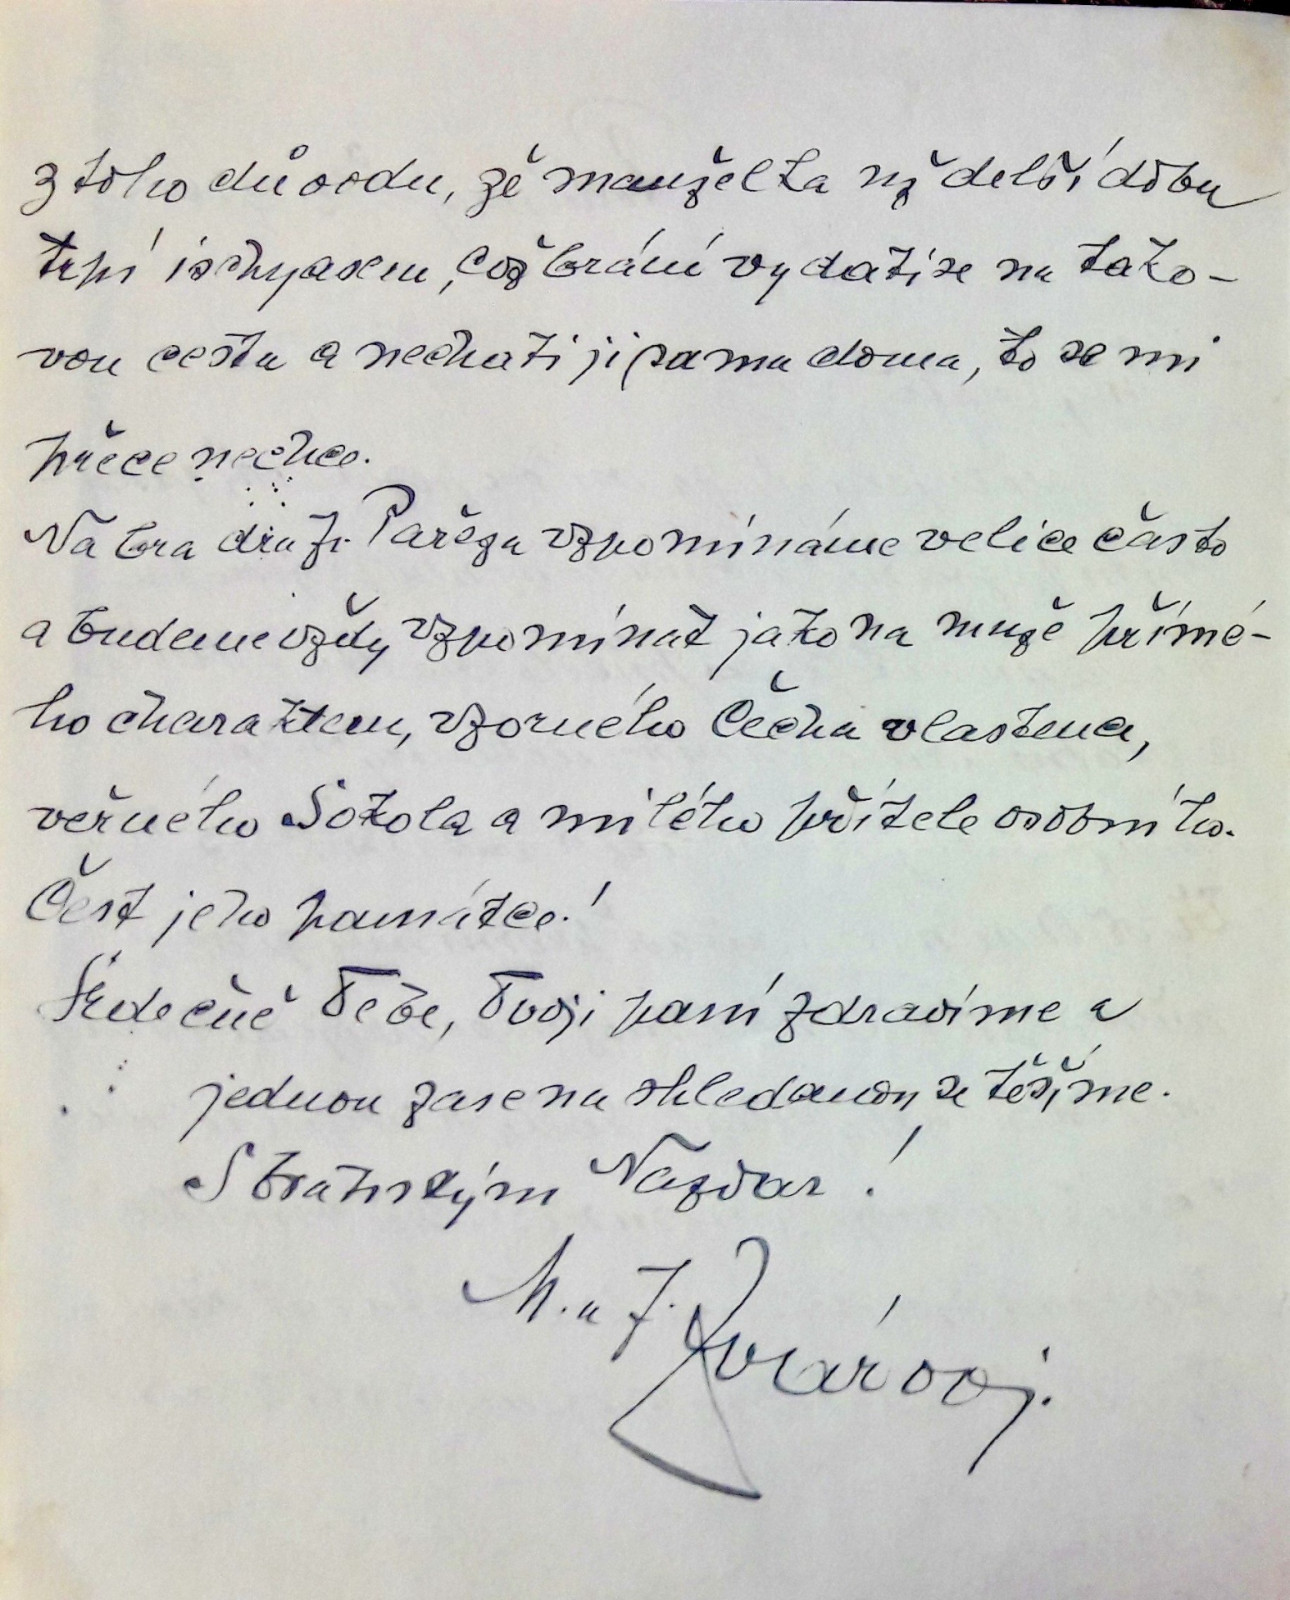 z toho důvodu, že manželka už delší dobu
trpí ischyasem, což brání vydati se na tako-
vou cestu a nechati ji samu doma, to se mi
přece nechce.
Na bra Pařeza vzpomínáme velice často
a budeme vždy vzpomínat jako na muže přímé-
ho charakteru, vzorného Čecha vlastence,
věrného Sokola a milého přítele osobního.
Čest jeho památce!
Srdečně Tebe, Tvoji paní zdravíme a
jednou zase na shledanou se těšíme.
S bratrským Nazdar!
M. a J.